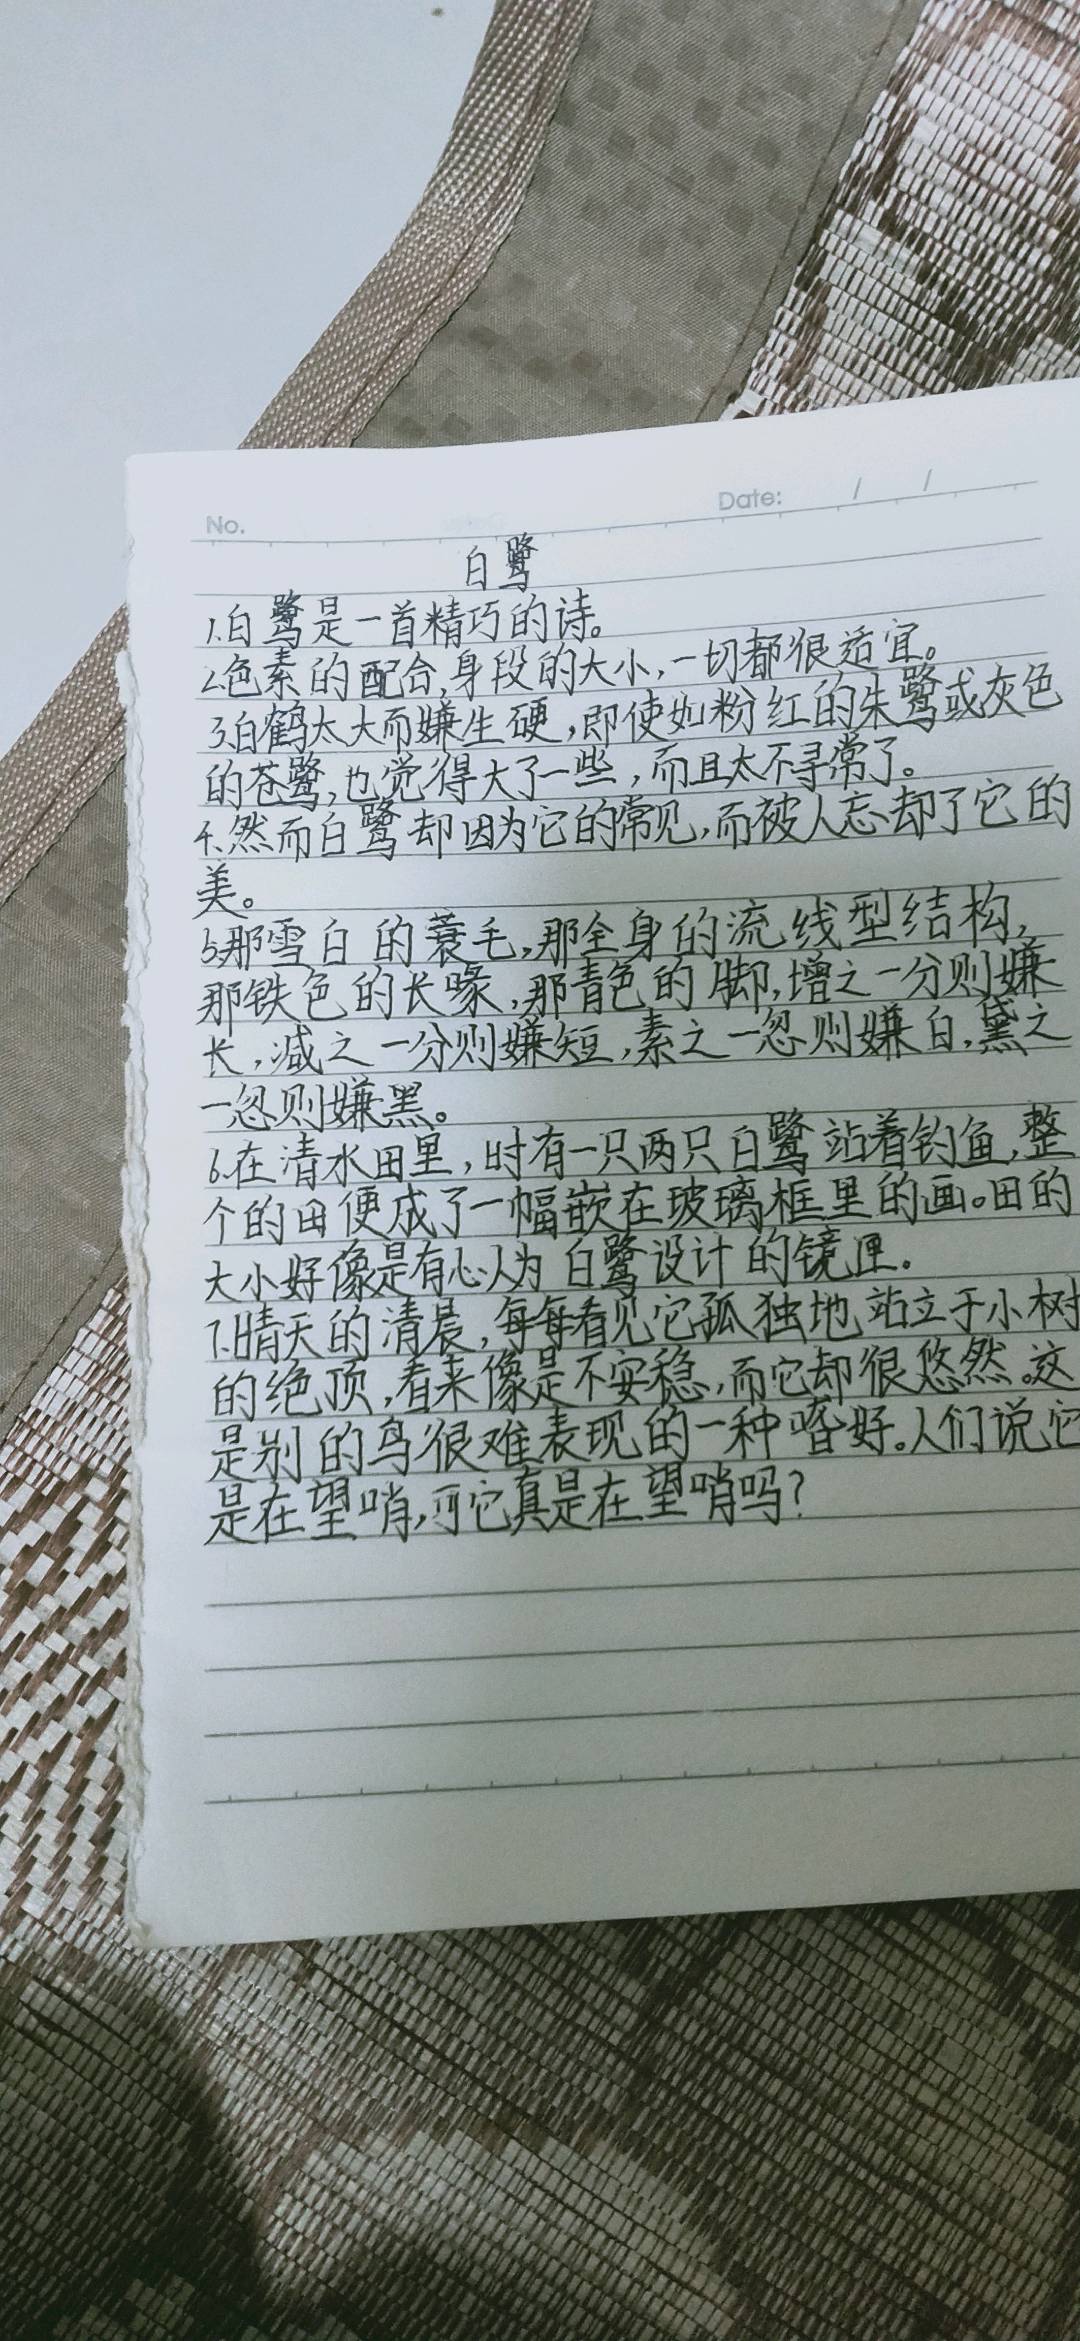 No.
Date: / /
白鹭
1.白鹭是一首精巧的诗。
2.色素的配合,身段的大小,一切都很适宜。
3.白鹤太大而嫌生硬,即使如粉红的朱鹭或灰色
的苍鹭,也觉得大了一些,而且太不寻常了。
4.然而白鹭却因为它的常见,而被人忘却了它的
美。
5.那雪白的蓑毛,那全身的流线型结构,
那铁色的长喙,那青色的脚,增之一分则嫌
长,减之一分则嫌短,素之一忽则嫌白,黛之
一忽则嫌黑。
6.在清水田里,时有一只两只白鹭站着钓鱼,整
个的田便成了一幅嵌在玻璃框里的画。田的
大小好像是有心人为白鹭设计的镜匣。
7.晴天的清晨,每每看见它孤独地站立于小树
的绝顶,看来像是不安稳,而它却很悠然。这
是别的鸟很难表现的一种嗜好。人们说它
是在望哨,可它真是在望哨吗?